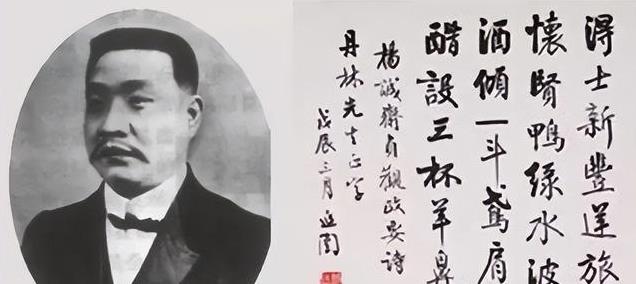 得士新豐逆旅
懷賢鴨綠水波
酒傾一斗鳶肩
醋設三杯羊鼻
楊誠齋貞觀政要詩
丹林先生正字
戊辰三月 延闓